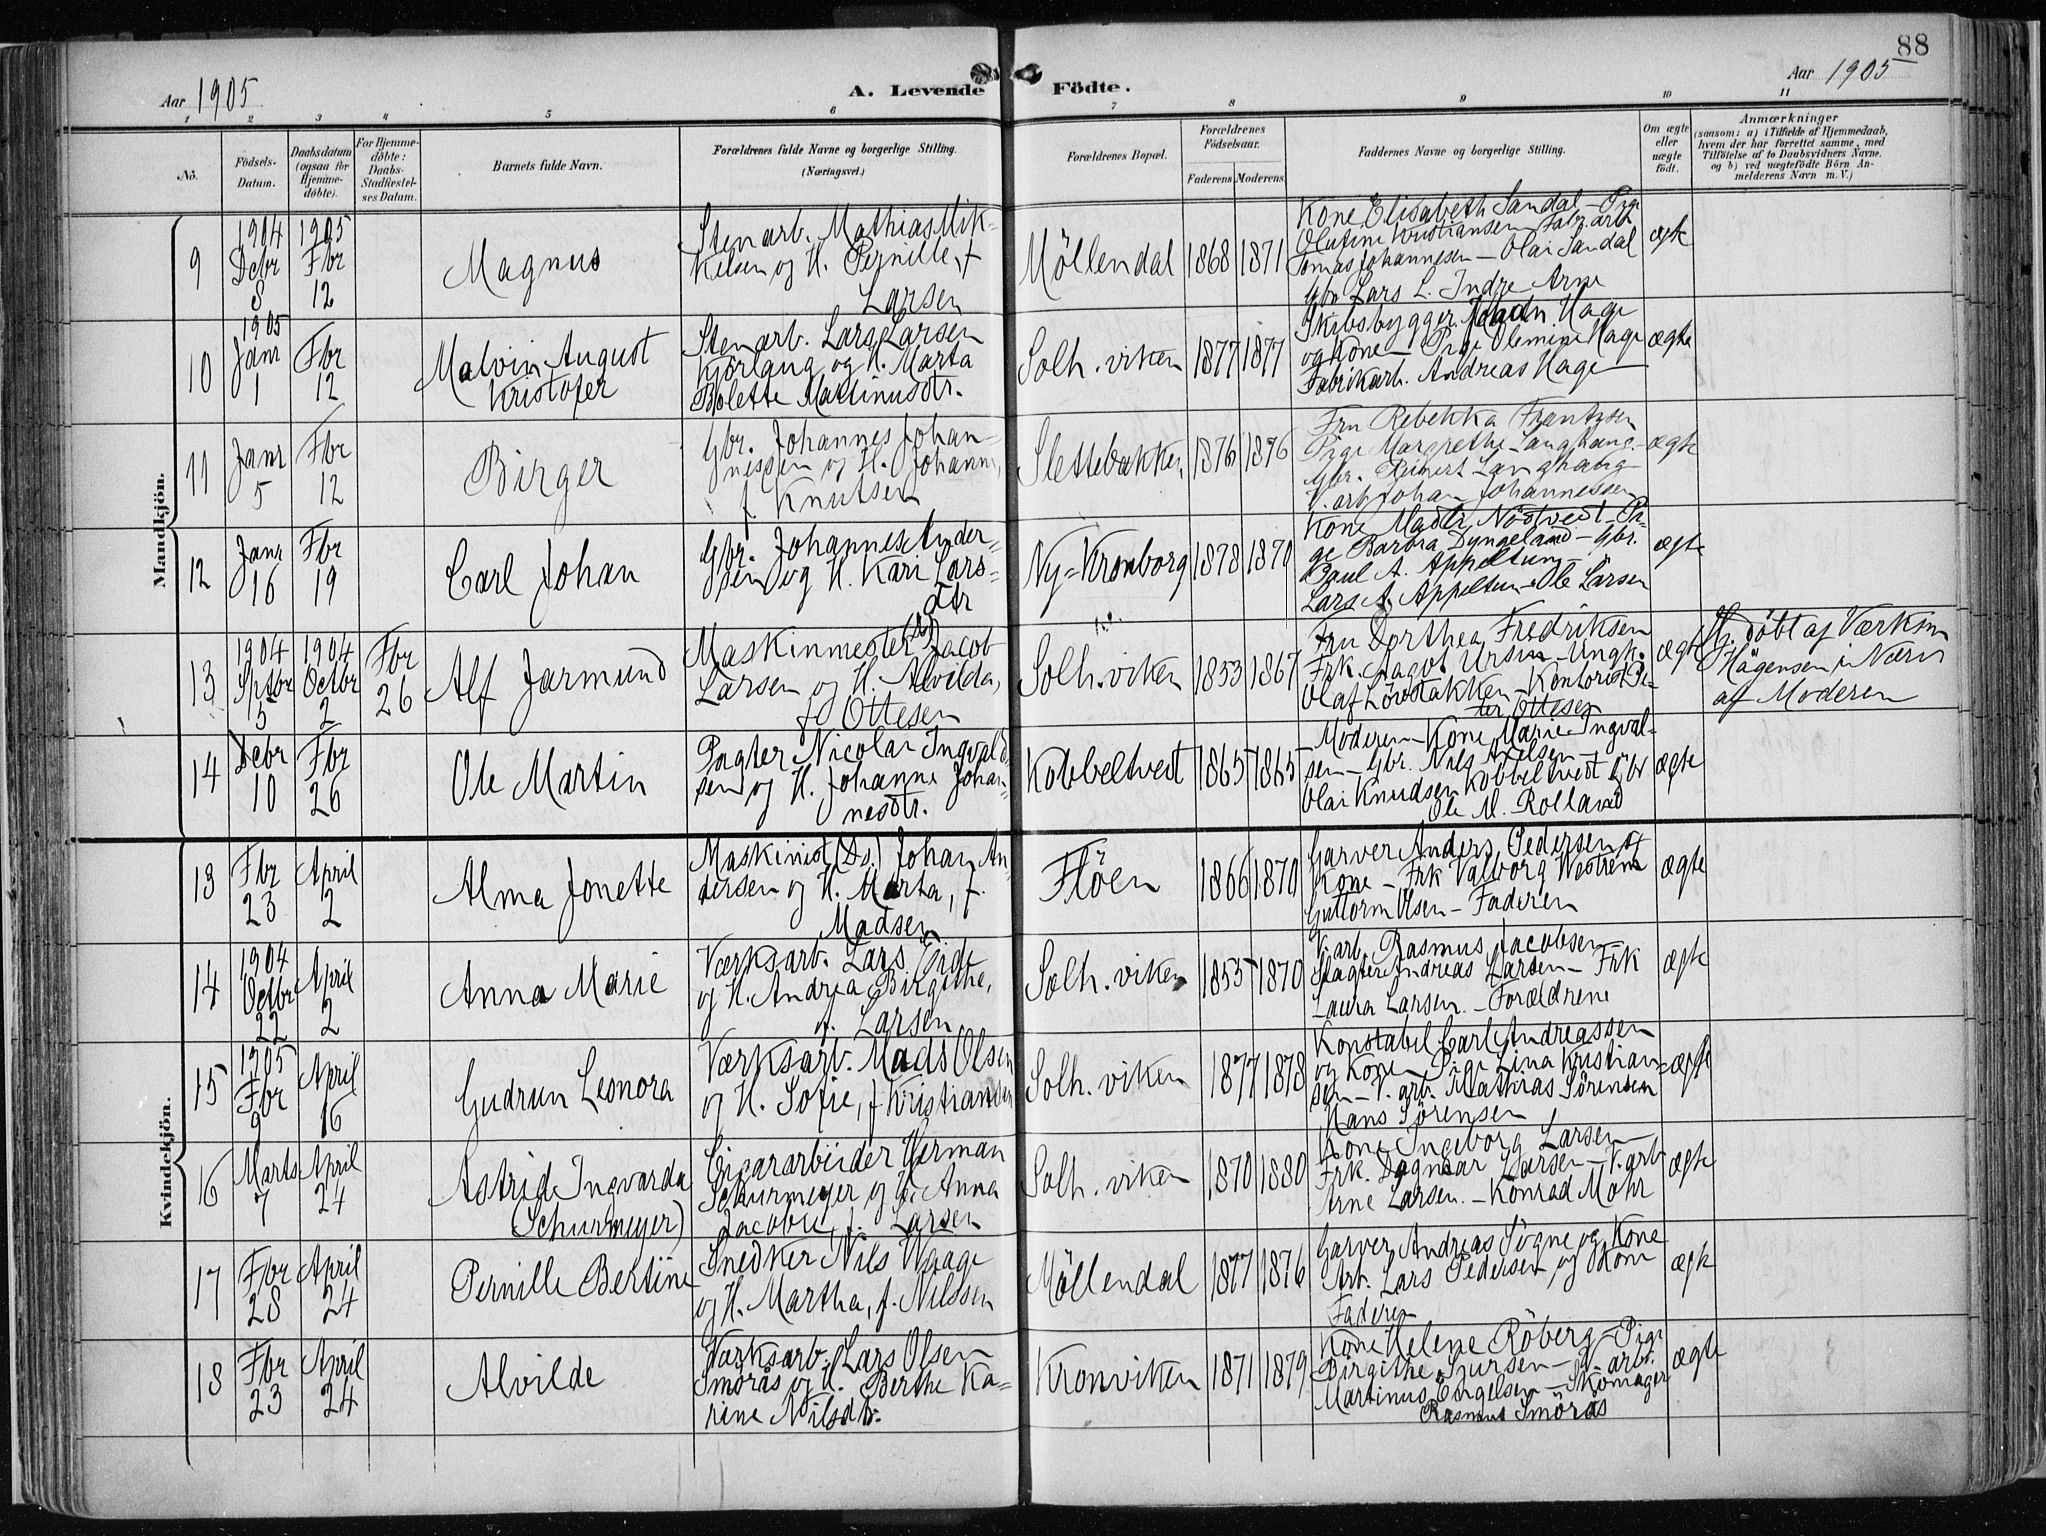 88
Aar 1905
A. Levende Födte.
Aar 1905
1 2 3 4 5 6 7 8 9 10 11
No.
Födsels-Datum.
Daabsdatum (ogsaa för Hjemmedöbte).
For Hjemmedöbte: Daabs-Stadfæstelses Datum.
Barnets fulde Navn.
Forældrenes fulde Navne og borgerlige Stilling.
(Næringsvei.)
Forældrenes Bopæl.
Forældrenes Födselsaar.
Faderens Moderens
Faddernes Navne og borgerlige Stilling.
Om ægte eller uægte födt.
Anmærkninger
(saasom: a) i Tilfælde af Hjemmedaab,
hvem der har forrettet samme, med
Tilföielse af to Daabsvidners Navne.
og b) ved uægtefödte Börn Anmelderens Navn m. V.)
Mandkjön.
9
1904 Debr 8
1905 Fbr 12
Magnus
Stenarb. Mathias Mik-
kelsen og H. Pernille, f.
Larsen
Möllendal
1868 1871
Kone Elisabeth Sandal - Pige
Olufine Kristiansen Fabr. arb
Tomas Johannesen - Olai Sandal
Gbr Lars L. Indre Arne
ægte
10
1905 Janr 1
Fbr 12
Malvin August
Kristofer
Stenarb. Lars Larsen
Kjörlaug og H. Marta
Bolette Martinusdtr.
Solh. viken
1877 1877
Skibsbygger Hage
og Kone - Pige Olemine Hage
Fabrikarb. Andreas Hage
ægte
11
Janr 5
Fbr 12
Birger
Gbr. Johannes Johan-
nessen og H. Johanne,
f. Knutsen
Slettebakken
1876 1876
Fru Rebekka Frantzsen
Pige Margrethe Langhaug-
Gbr. Reinert Langhaug-
V. arb Johan Johannessen
ægte
12
Janr 16
Fbr 19
Carl Johan
Gbr. Johannes Ander-
sen og H. Kari Lars-
dtr
Ny=Kronborg
1878 1870
Kone Madli Nöstvedt - Pi-
ge Barbra Dyngeland - Gbr.
Paul A. Appeltun -
Lars A. Appeltun - Ole Larsen
ægte
13
1904 Sptbr 5
1904 Octbr 2
Fbr 26
Alf Jarmund
Maskinmester (Ds) Jacob
Larsen og H. Alvilda,
f. Ottesen
Solh. viken
1853 1867
Fru Dorthea Fredriksen
Frk. Aagot Ursin - Ungk.
Olaf Lövstakken - Kontorist Pe-
ter Ottesen
ægte
Hj. döbt af Værksm
Hägensen i Nærv
af Moderen
14
Debr 10
Fbr 26
Ole Martin
Pagter Nicolai Ingvald-
sen og H. Johanne Johan-
nesdtr.
Kobbeltvedt
1865 1865
- Moderen - Kone Marie Ingval-
sen - Gbr. Nils Axelsen
Olai Knudsen Kobbeltvedt Gbr
Ole M. Rolland
ægte
Kvindekjön.
13
Fbr 23
April 2
Alma Jonette
Maskinist (Ds.) Johan An-
dersen og H. Marta, f.
Madsen
Flöen
1866 1870
Garver Anders Pedersen og
Kone - Frk Valborg Westrem
Guttorm Olsen - Faderen
ægte
14
1904 Octbr 22
April 2
Anna Marie
Værksarb. Lars Eide
og H. Andrea Birgithe,
f. Larsen
Solh. viken
1855 1870
V. arb. Rasmus Jacobsen -
Slagter Andreas Larsen - Frk
Laura Larsen. - Forældrene
ægte
15
1905 Fbr 9
April 16
Gudrun Leonora
Værksarb. Mads Olsen
og H. Sofie, f Kristiansen
Solh. viken
1877 1878
Konstabel Carl Andreassen
og Kone - Pige Lina Kristian-
sen - V. arb. Mathias Sörensen
Hans Sörensen
ægte
16
Marts 7
April 24
Astrid Ingvarda
(Schurmeyer)
Cigararbeider Herman
Schurmeyer og H. Anna
Jacobie, f. Larsen
Solh. viken
1870 1880
Kone Ingeborg Larsen
Frk. Dagmar Larsen - V. arb
Arne Larsen. - Konrad Mohr
ægte
17
Fbr 28
April 24
Pernille Bertine
Snedker Nils Waage
og H. Martha, f. Nilssen
Möllendal
1877 1876
Garver Andreas Sogne og Kone
Arb. Lars Pedersen og Kone
Faderen
ægte
18
Fbr 23
April 24
Alvilde
Værksarb. Lars Olsen
Smörås og H. Berthe Ka-
rine Nilsdtr.
Kronviken
1871 1879
Kone Helene Röberg - Pige
Birgithe Sjursen - V. arb.
Martinus Engelsen - Skomager
Rasmus Smörås
ægte